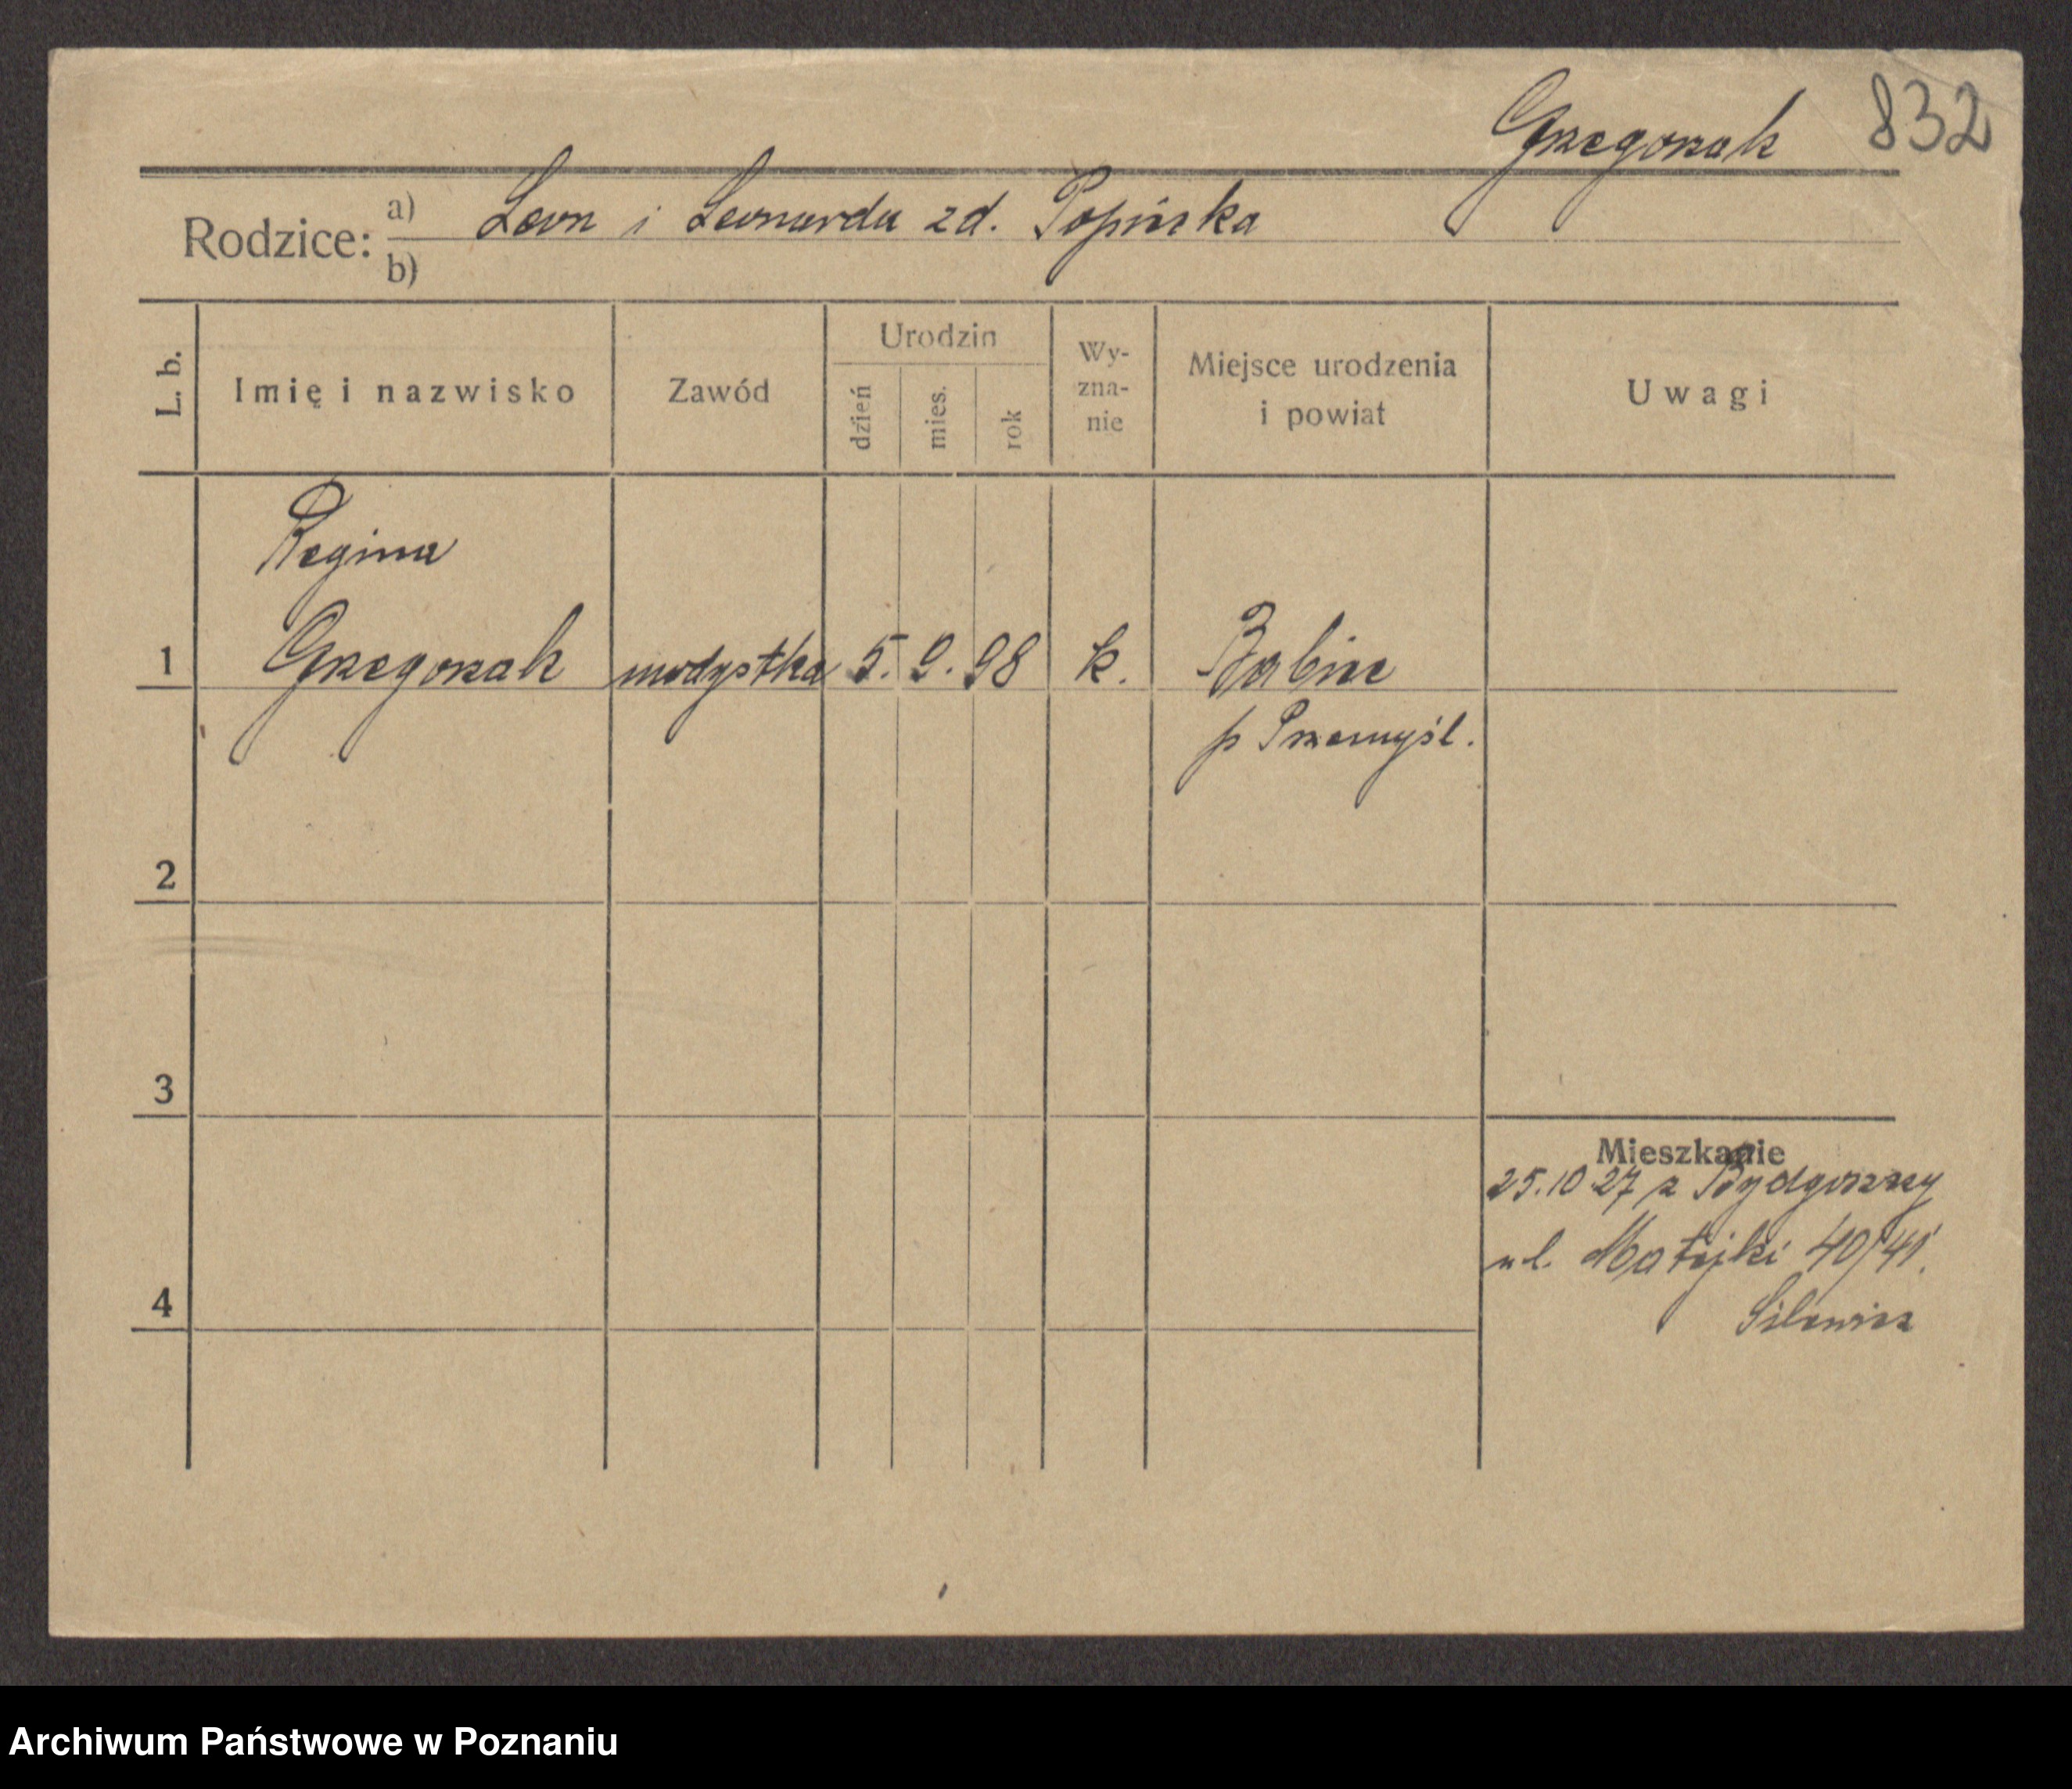 Grzegorzak 832
Rodzice: a) Leon i Leonarda zd. Popińska
b)
L. b. Imię i nazwisko Zawód Urodzin dzień mies. rok Wy-zna-nie Miejsce urodzenia i powiat Uwagi
Regina
1 Grzegorzak modystka 5. 9. 98 k. Babice
p Przemyśl.
2
3
Mieszkanie
25.10 27 z Bydgoszczy
ul. Matejki 40/41.
4
Archiwum Państwowe w Poznaniu